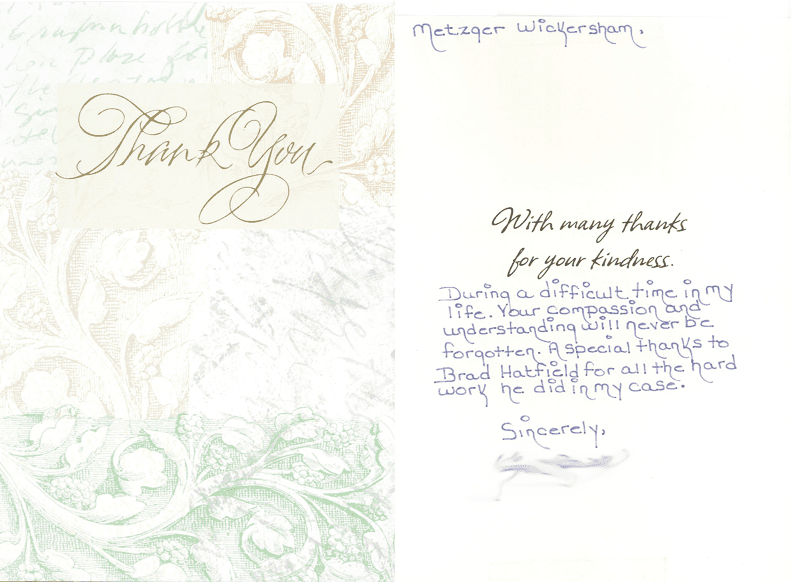 Thank You
Metzger Wickersham,
With many thanks
for your kindness.
During a difficult time in my
life. Your compassion and
understanding will never be
forgotten. A special thanks to
Brad Hatfield for all the hard
work he did in my case.
Sincerely,